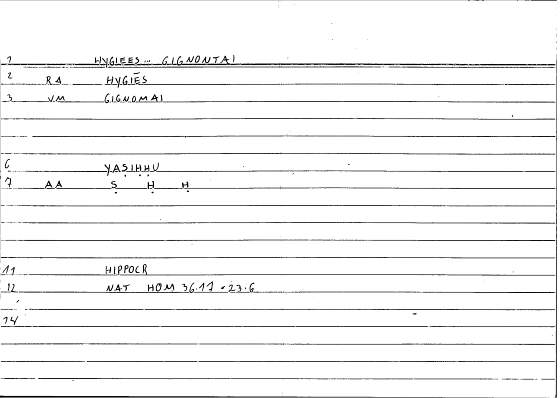 1 HYGIEES... GIGNONTAI
2 RA HYGIĒS
3 VM GIGNOMAI
6 YAṢIḤḤU
7 AA Ṣ Ḥ Ḥ
11 HIPPOCR
12 NAT HOM 36.17 = 23.6
14